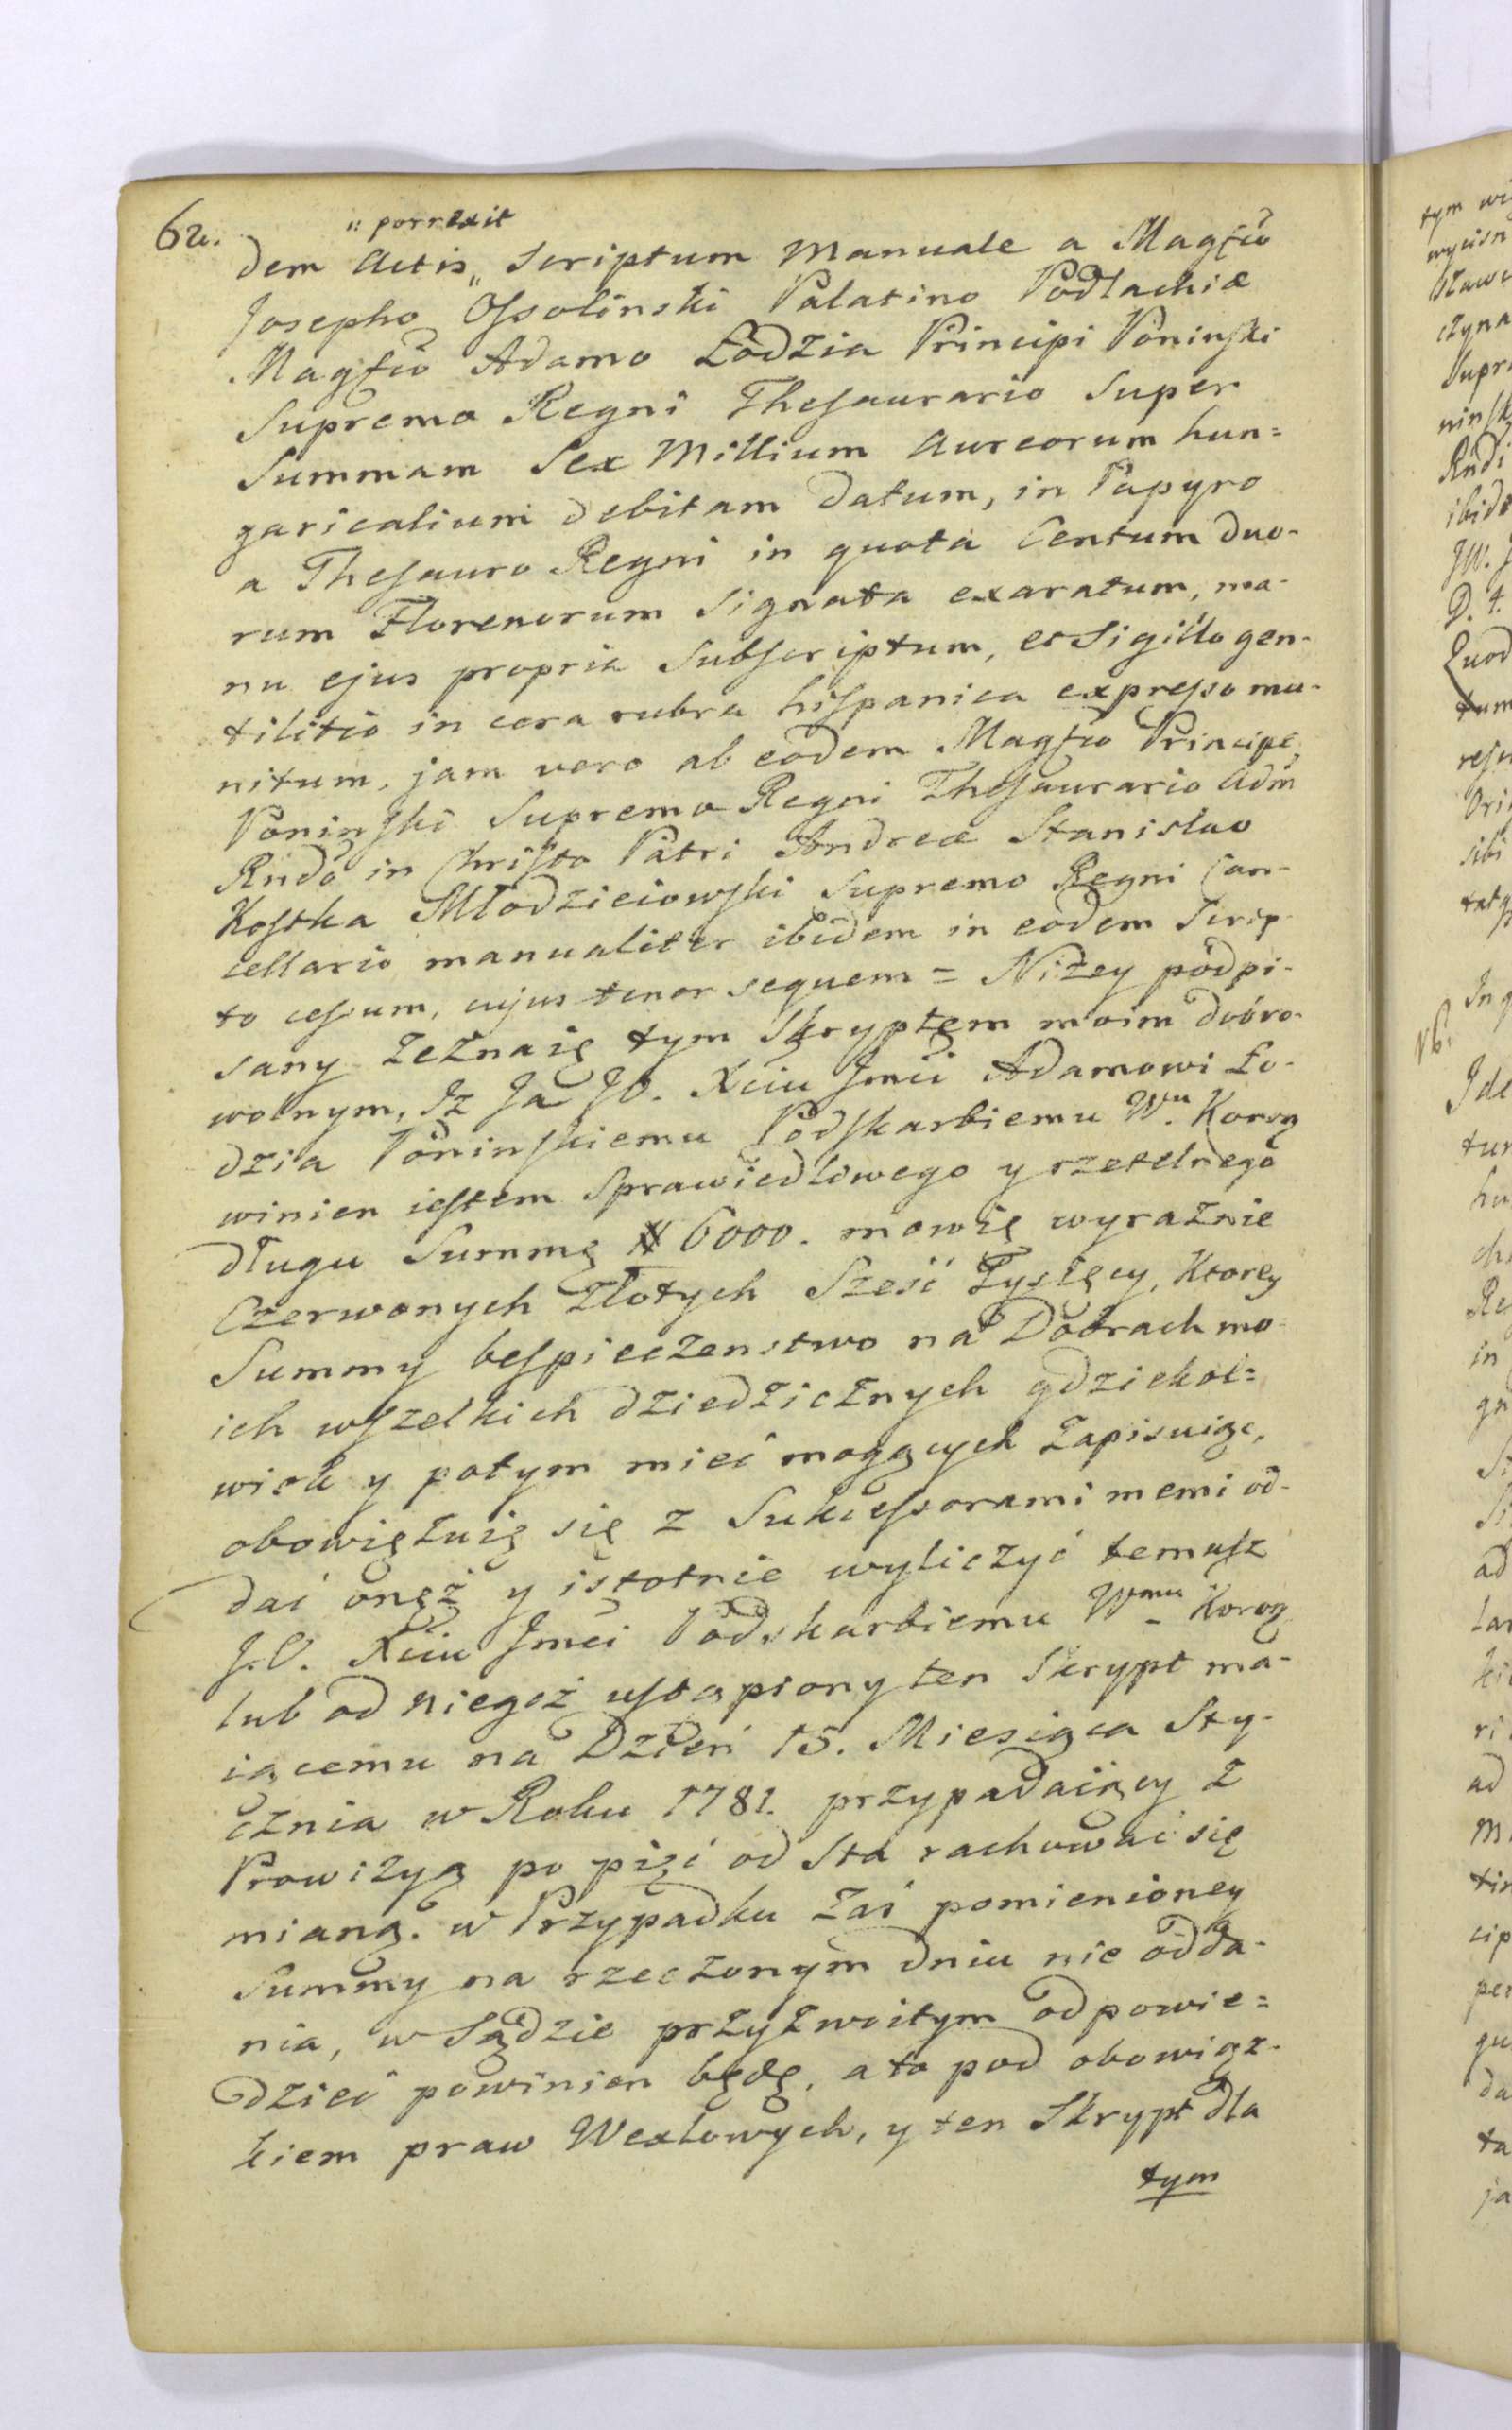 62.
„ porrexit
dem Actis „ Scriptum Manuale a Magfco
Josepho Ossolinski Palatino Podlachiæ
Magfco Adamo Łodzia Principi Poninski
Supremo Regni Thesaurario Super
Summam Sex Millium Aureorum hun=
garicalium debitam datum, in Papyro
a Thesauro Regni in quota Centum duo-
rum Florenorum Signata exaratum, ma-
nu ejus propria Subscriptum, et Sigillo gen-
tilitio in cera rubra hispanica expresso mu-
nitum, jam vero ab eodem Magfco Principe
Poninski Supremo Regni Thesaurario Adm
Rndo in Christo Patri Andreæ Stanislao
Kostka Młodzieiowski Supremo Regni Can-
cellario manualiter ibidem in eodem Scrip-
to cessum, cujus tenor sequem = Niżey podpi-
sany zeznaię tym Skryptem moim dobro-
wolnym, Iz Ja JO. Xciu Jmci Adamowi Ło-
dzia Poninskiemu Podskarbiemu Wu. Koron
winien iestem Sprawiedliwego y rzetelnego
długu Summę # 6000. mowię wyraznie
Czerwonych Złotych Sześć Tysięcy, Ktorey
Summy bespieczenstwo na Dobrach mo-
ich wszelkich dziedzicznych gdziekol=
wiek y potym mieć mogących zapisuiąc,
obowięzuię się z Sukcessorami memi od-
dać onęż y istotnie wyliczyć temusz
J.O. Xciu Jmci Podskarbiemu Wmu Koron
lub od niegoż ustąpiony ten Skrypt ma-
iącemu na Dzień 15. Miesiąca Sty-
cznia w Roku 1781. przypadaiący z
Prowizyą po pięć od Sta rachować się
mianą. w Przypadku zaś pomienioney
Summy na rzeczonym dniu nie odda-
nia, w Sądzie przyzwoitym odpowie=
dzieć powinien będę, a to pod obowiąz-
kiem praw Wexlowych, y ten Skrypt dla
tym